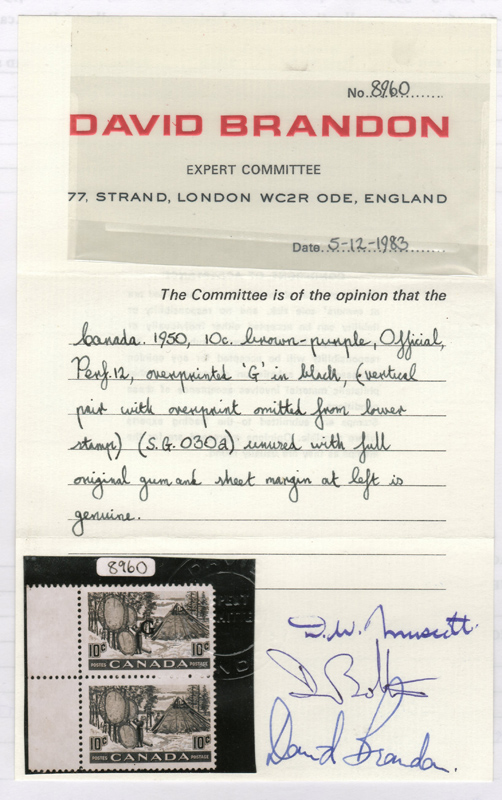 No. 8960
DAVID BRANDON
EXPERT COMMITTEE
77, STRAND, LONDON WC2R ODE, ENGLAND
Date 5-12-1983
The Committee is of the opinion that the
Canada. 1950, 10c. brown-purple, Official,
Perf.12, overprinted 'G' in black, (vertical
pair with overprint omitted from lower
stamp) (S.G. 030a) unused with full
original gum and sheet margin at left is
genuine.
8960
G
10¢ 10¢
POSTES POSTAGE
CANADA
10¢ 10¢
POSTES POSTAGE
CANADA
David Brandon.